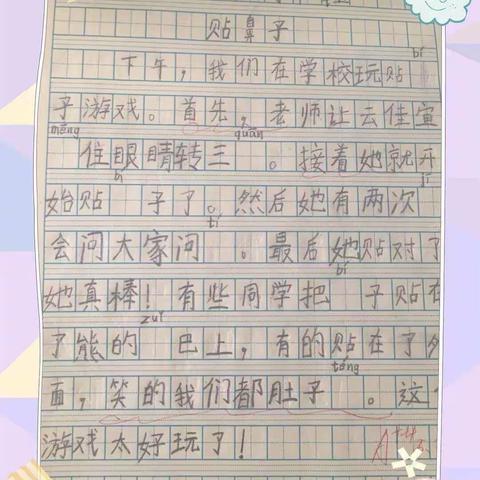 贴鼻子
bí
下午，我们在学校玩贴
子游戏。首先，老师让云佳宜
mēng quān
住眼睛转三 。接着她就开
bí jī
始贴 子了。然后她有两次
tí
会问大家问 。最后她贴对了
bí
她真棒！有些同学把 子贴在
zuǐ
了熊的 巴上，有的贴在了外
tòng
面，笑的我们都肚子 。这
游戏太好玩了！
A+